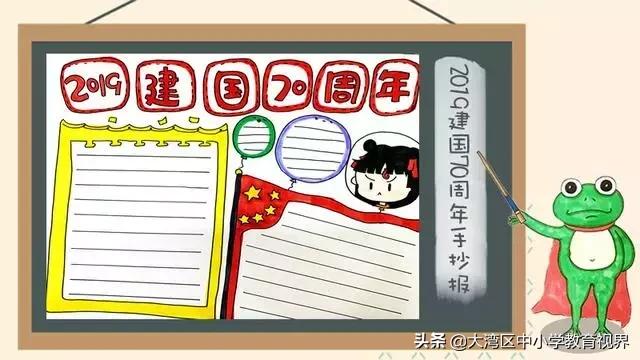 2019建国70周年
2019建国70周年手抄报
头条@大湾区中小学教育视界